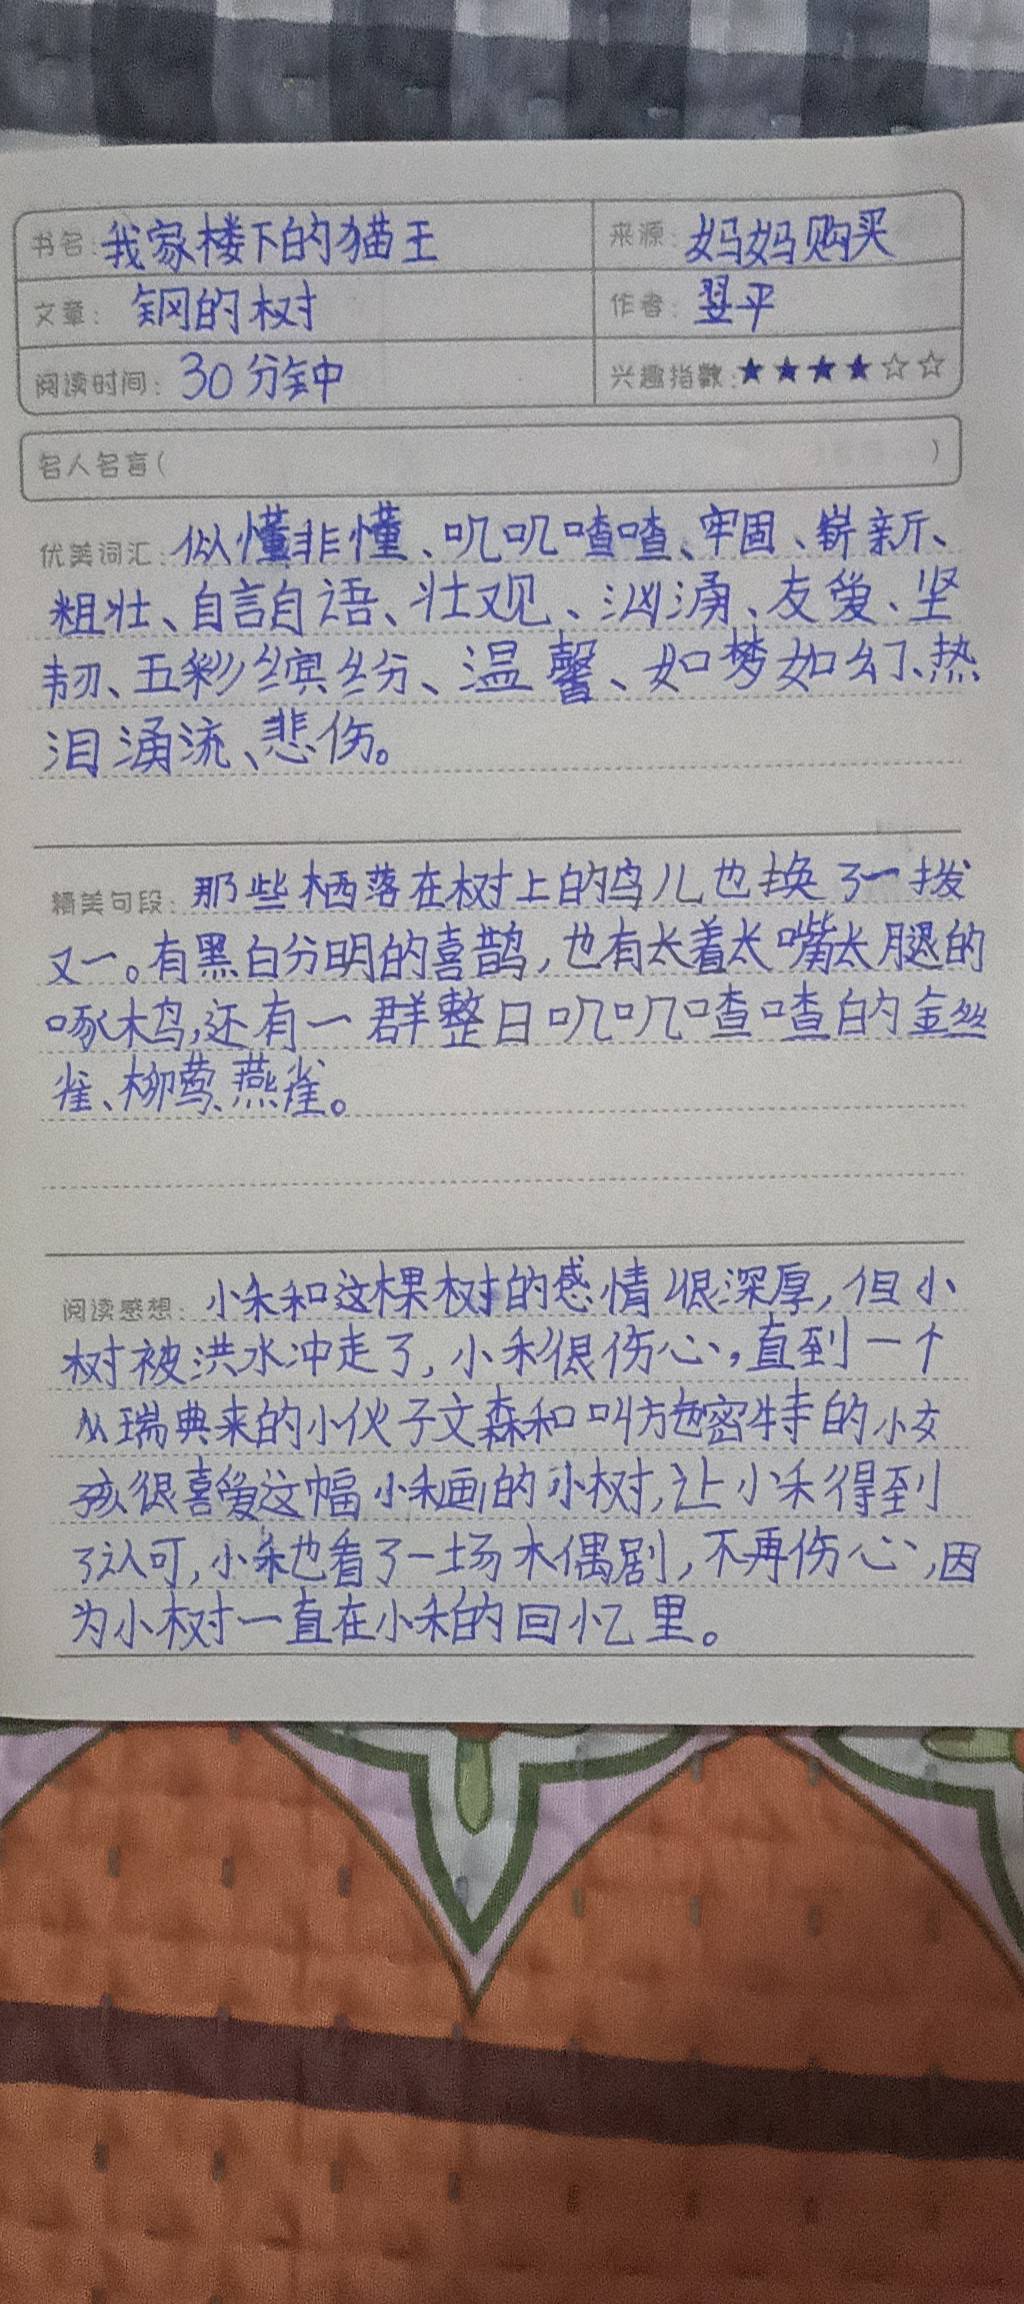 书名: 我家楼下的猫王 来源: 妈妈购买
文章: 钢的树 作者: 翌平
阅读时间: 30分钟 兴趣指数: ★★★★☆☆
名人名言( )
优美词汇: 似懂非懂、叽叽喳喳、牢固、崭新、
粗壮、自言自语、壮观、汹涌、友爱、坚
韧、五彩缤纷、温馨、如梦如幻、热
泪涌流、悲伤。
精美句段: 那些栖落在树上的鸟儿也换了一拨
又一。有黑白分明的喜鹊,也有长着长嘴长腿的
啄木鸟,还有一群整日叽叽喳喳的金丝
雀、柳莺、燕雀。
阅读感想: 小禾和这棵树的感情很深厚,但小
树被洪水冲走了,小禾很伤心,直到一个
从瑞典来的小伙子文森和叫方迪密特的小女
孩很喜爱这幅小禾画的小树,让小禾得到
了认可,小禾也看了一场木偶剧,不再伤心,因
为小树一直在小禾的回忆里。